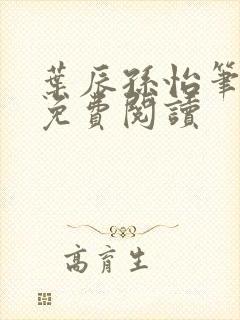 葉辰孫怡筆
免費閱讀
高育生